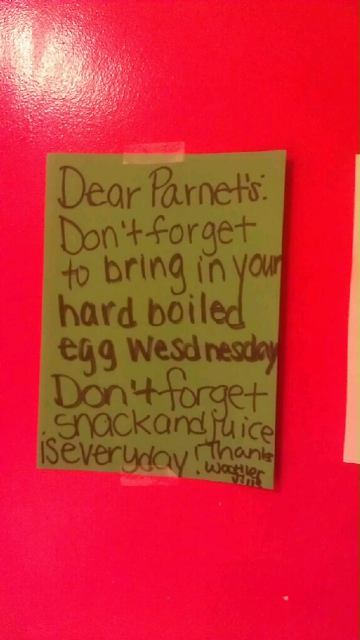 Dear Parnet's:
Don't forget
to bring in your
hard boiled
egg Wesdnesday
Don't forget
snack and juice
is everyday! Thanks